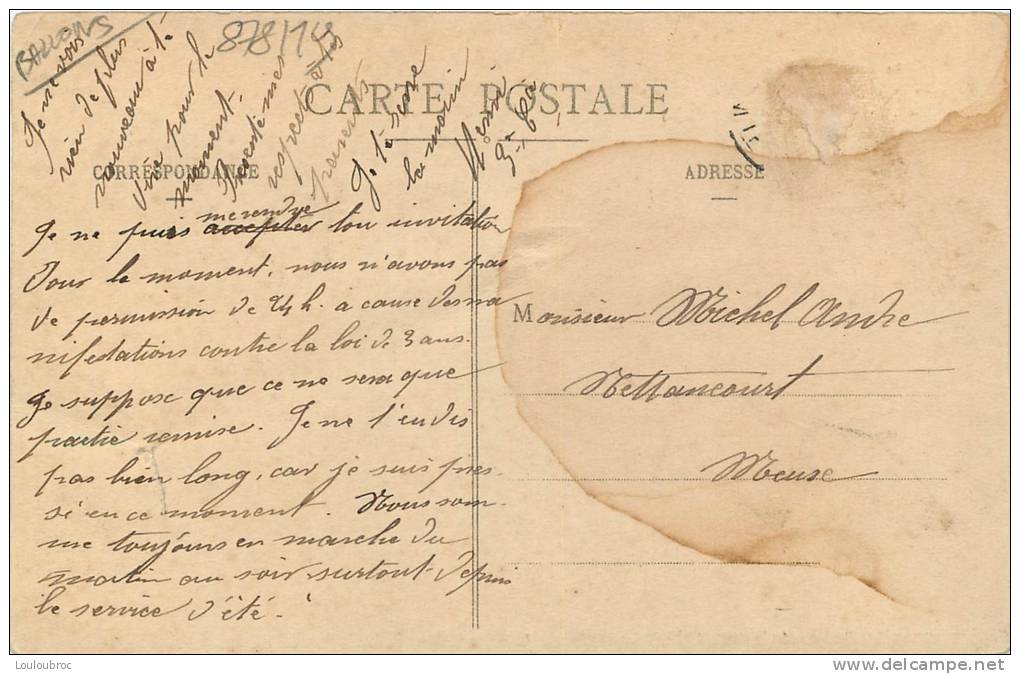 BALLONS
878/14
CARTE POSTALE
CORRÉSPONDANCE
ADRESSE
Je ne puis accepter me rendre ton invitation
Pour le moment, nous n'avons pas
de permission de 24 h. à cause des ma
nifestations contre la loi de 3 ans.
Je suppose que ce ne sera que
partie remise. Je ne t'en dis
pas bien long, car je suis pres-
sé en ce moment. Nous som-
me toujours en marche du
matin au soir surtout depuis
le service d'été.
Je ne vois
rien de plus
nouveau à te
dire pour le
moment.
Présente mes
respects à tes
parents
Je te serre
la main
Henri
Monsieur Michel Andre
Nettancourt
Meuse
Louloubroc
http://www.delcampe.net